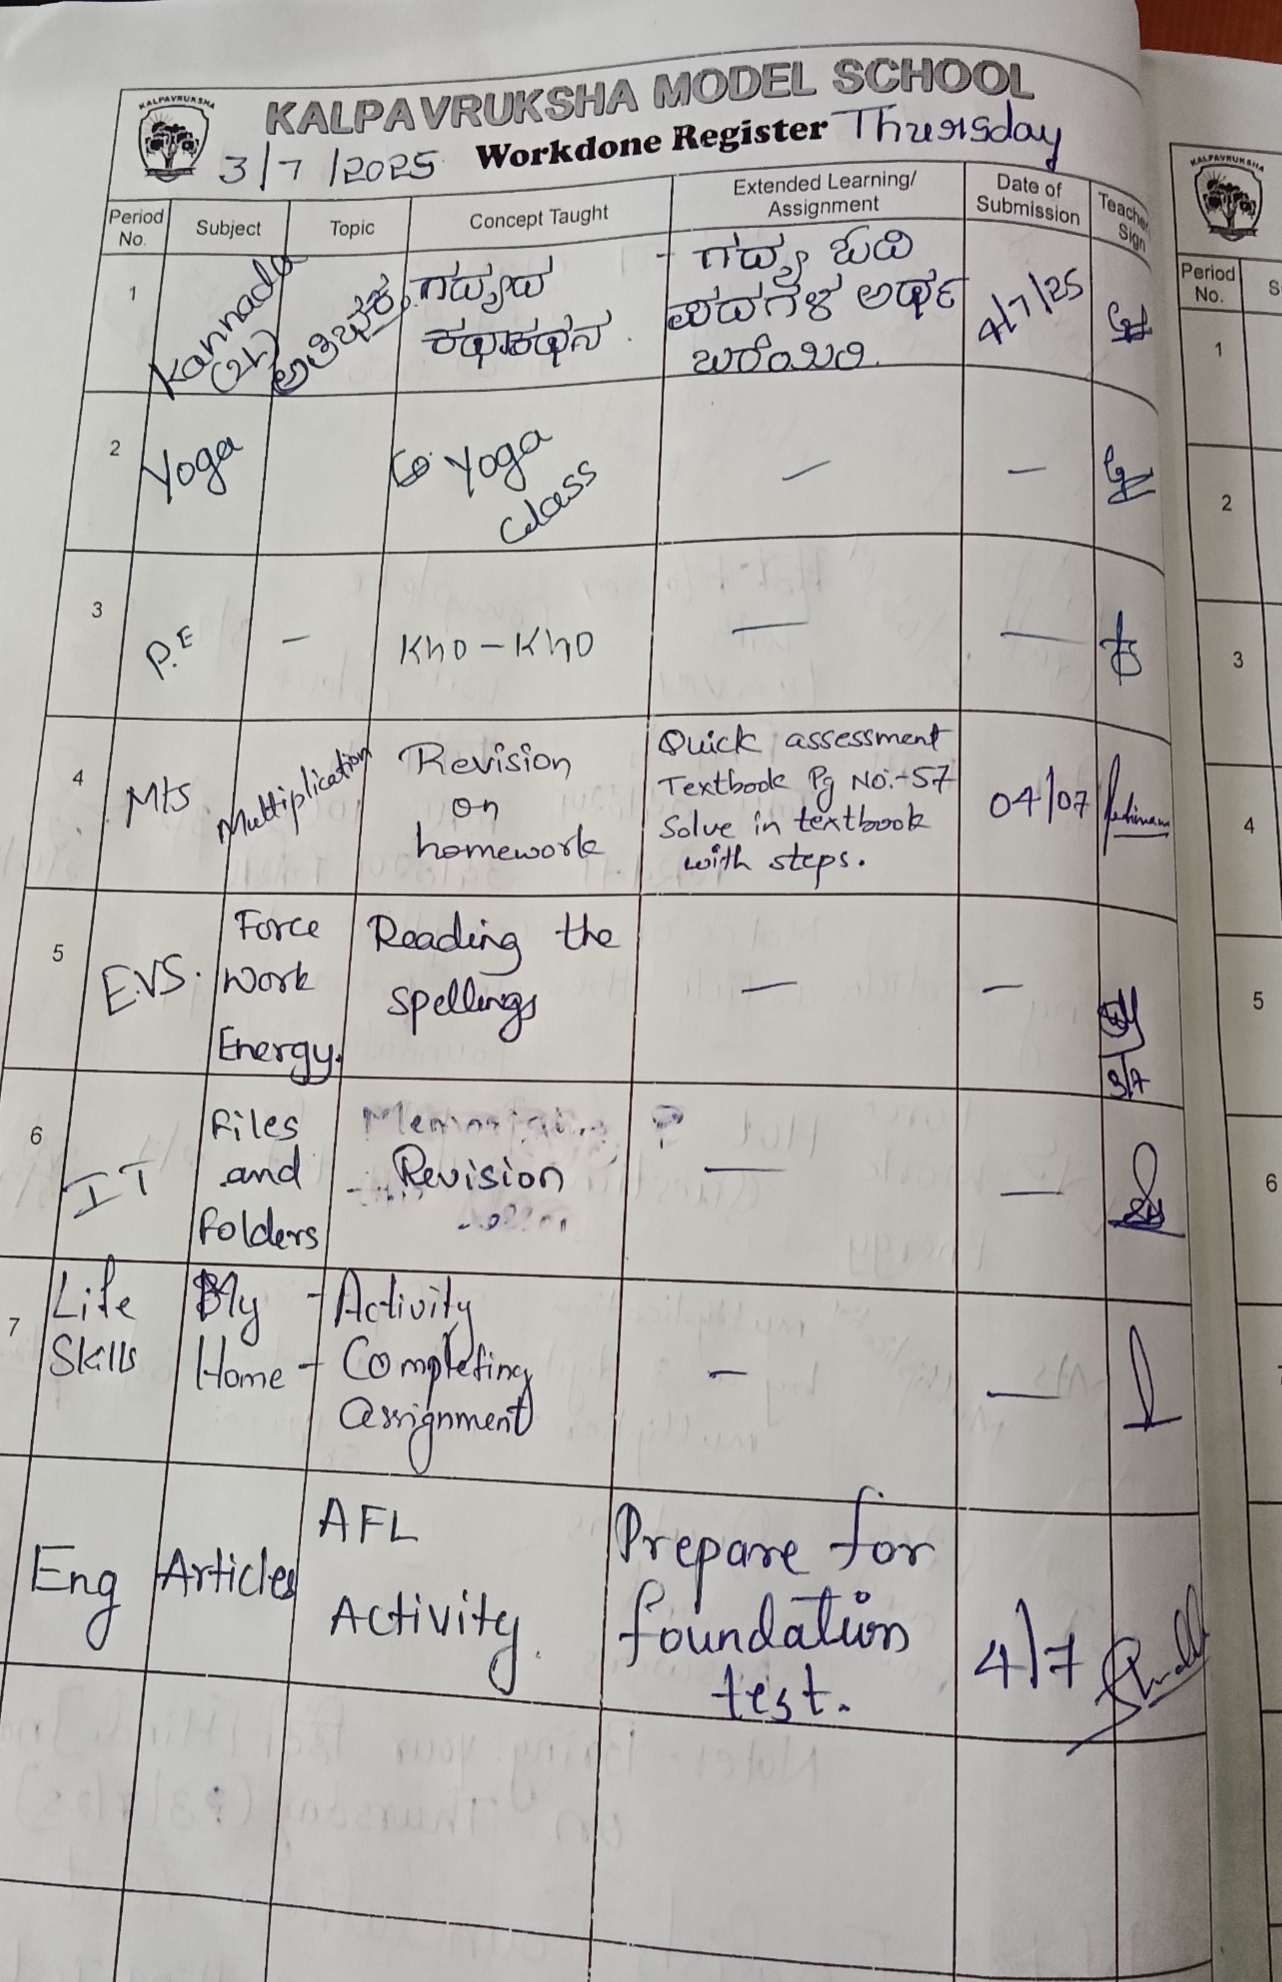 KALPAVRUKSHA
KALPAVRUKSHA MODEL SCHOOL
3/7/2025 Workdone Register Thursday
Period No. Subject Topic Concept Taught Extended Learning/ Assignment Date of Submission Teacher Sign
1 Kannada (2L) ಗದ್ಯದ ಕಥಾಕಥನ.
- ಗದ್ಯ ಓದಿ
ಪದಗಳ ಅರ್ಥ
ಬರೆಯಿರಿ.
4/7/25
2 Yoga Yoga class — —
3 P.E - Kho-Kho — —
4 Mts Multiplication
Revision
on
homework
Quick assessment
Textbook Pg No:-57
Solve in textbook
with steps.
04/07
5 E.VS.
Force
Work
Energy.
Reading the
spellings
— —
3/7
6 IT
Files
and
folders
Revision
— —
7 Life
Skills
My
Home
- Activity
- Completing
assignment
- —
Eng Articles
AFL
Activity.
Prepare for
foundation
test.
4/7
KALPAVRUKSHA
Period
No.
1
2
3
4
5
6